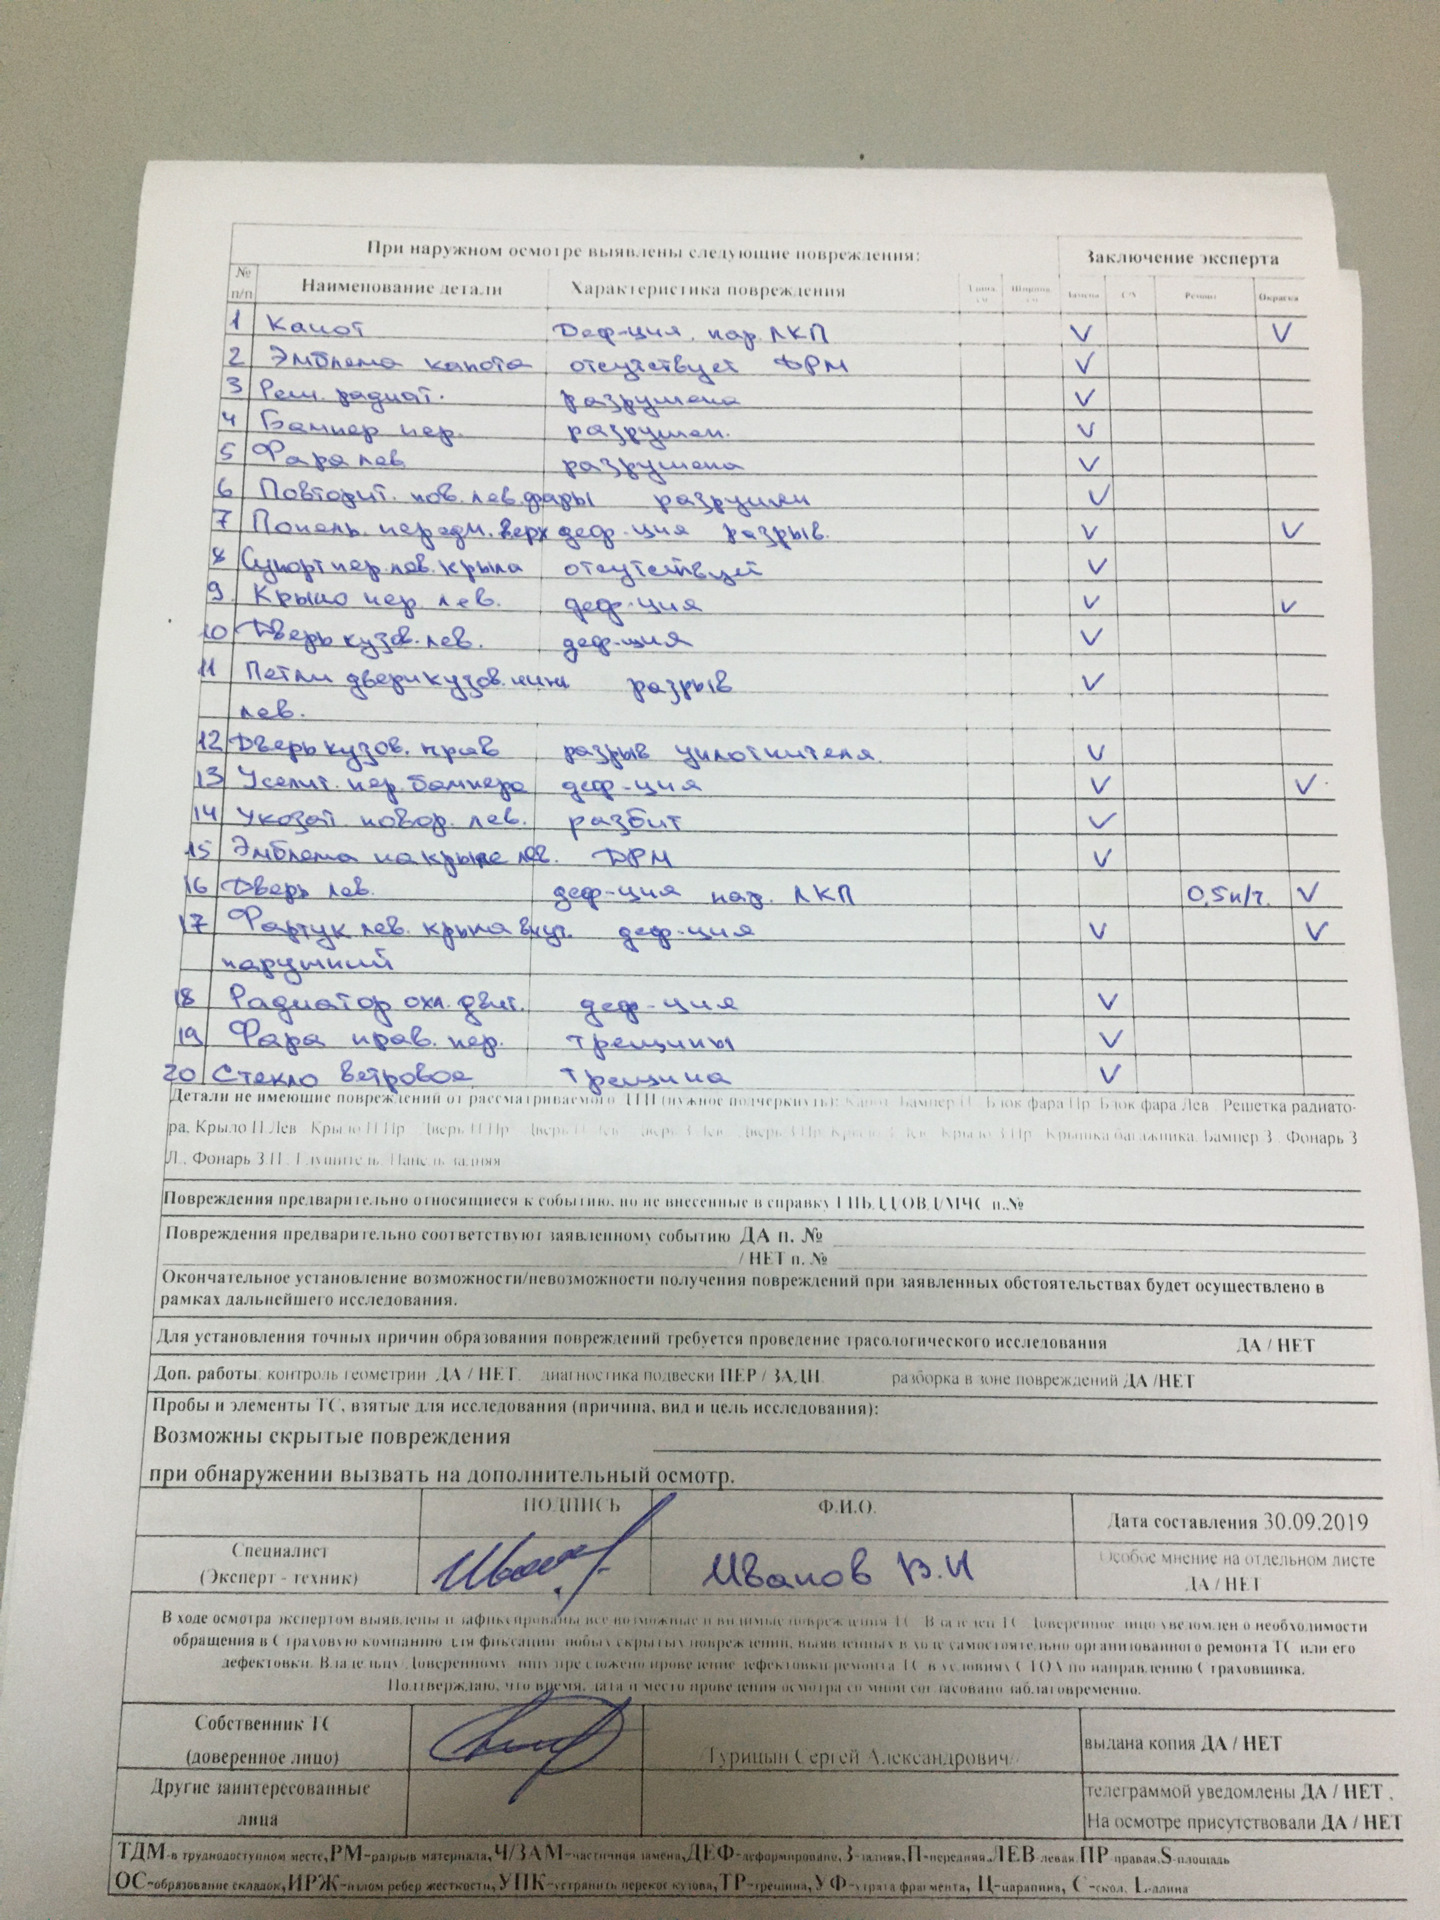 При наружном осмотре выявлены следующие повреждения: Заключение эксперта
№ п/п Наименование детали Характеристика повреждения Ширина Замена Ремонт Окраска
1 Капот Деф-ция, нар. ЛКП V V
2 Эмблема капота отсутствует ДРМ V
3 Реш. радиат. разрушена V
4 Бампер пер. разрушен. V
5 Фара лев. разрушена V
6 Повторит. пов. лев. фары разрушен V
7 Понель. передн. верх деф-ция разрыв. V V
8 Супорт пер. лев. крыла отсутствует V
9 Крыло пер. лев. деф-ция V V
10 Дверь кузов. лев. деф-ция V
11 Петли двери кузов. нижн разрыв V
лев.
12 Дверь кузов. прав разрыв уплотнителя. V
13 Уселит. пер. бампера деф-ция V V
14 Указат. повор. лев. разбит V
15 Эмблема на крыле лев. ДРМ V
16 Дверь лев. деф-ция нар. ЛКП 0,5н/г. V
17 Фартук лев. крыла внут. деф-ция V V
наружний
18 Радиатор охл. двиг. деф-ция V
19 Фара прав. пер. трещины V
20 Стекло ветровое трещина V
Детали не имеющие повреждений от рассматриваемого ДТП (нужное подчеркнуть): Капот, Бампер П., Блок фара Пр, Блок фара Лев., Решетка радиато-
ра, Крыло П Лев., Крыло П Пр., Дверь П Пр., Крышка багажника, Бампер З., Фонарь З
Л., Фонарь З П., Глушитель, Панель задняя
Повреждения предварительно относящиеся к событию, но не внесенные в справку п.№
Повреждения предварительно соответствуют заявленному событию ДА п. №
/ НЕТ п. №
Окончательное установление возможности/невозможности получения повреждений при заявленных обстоятельствах будет осуществлено в
рамках дальнейшего исследования.
Для установления точных причин образования повреждений требуется проведение трасологического исследования ДА / НЕТ
Доп. работы: контроль геометрии ДА / НЕТ. диагностика подвески ПЕР / ЗАДН. разборка в зоне повреждений ДА /НЕТ
Пробы и элементы ТС, взятые для исследования (причина, вид и цель исследования):
Возможны скрытые повреждения
при обнаружении вызвать на дополнительный осмотр.
ПОДПИСЬ Ф.И.О. Дата составления 30.09.2019
Специалист
(Эксперт - техник) Иванов В.И
Особое мнение на отдельном листе
ДА / НЕТ
В ходе осмотра экспертом выявлены и зафиксированы все возможные и видимые повреждения ТС. Владелец ТС/Доверенное лицо уведомлен о необходимости
обращения в Страховую компанию для фиксации любых скрытых повреждений, выявленных в ходе самостоятельно организованного ремонта ТС или его
дефектовки. Владельцу/Доверенному лицу предложено проведение дефектовки/ремонта ТС в условиях СТОА по направлению Страховщика.
Подтверждаю, что время, дата и место проведения осмотра со мной согласовано заблаговременно.
Собственник ТС
(доверенное лицо) Турицын Сергей Александрович/ выдана копия ДА / НЕТ
Другие заинтересованные
лица
телеграммой уведомлены ДА / НЕТ ,
На осмотре присутствовали ДА / НЕТ
ТДМ-в труднодоступном месте, РМ-разрыв материала, Ч/ЗАМ-частичная замена, ДЕФ-деформировано, З-задняя, П-передняя, ЛЕВ-левая, ПР-правая, S-площадь
ОС-образование складок, ИРЖ-излом ребер жесткости, УПК-устранить перекос кузова, ТР-трещина, УФ-утрата фрагмента, Ц-царапина, С-скол, L-длина